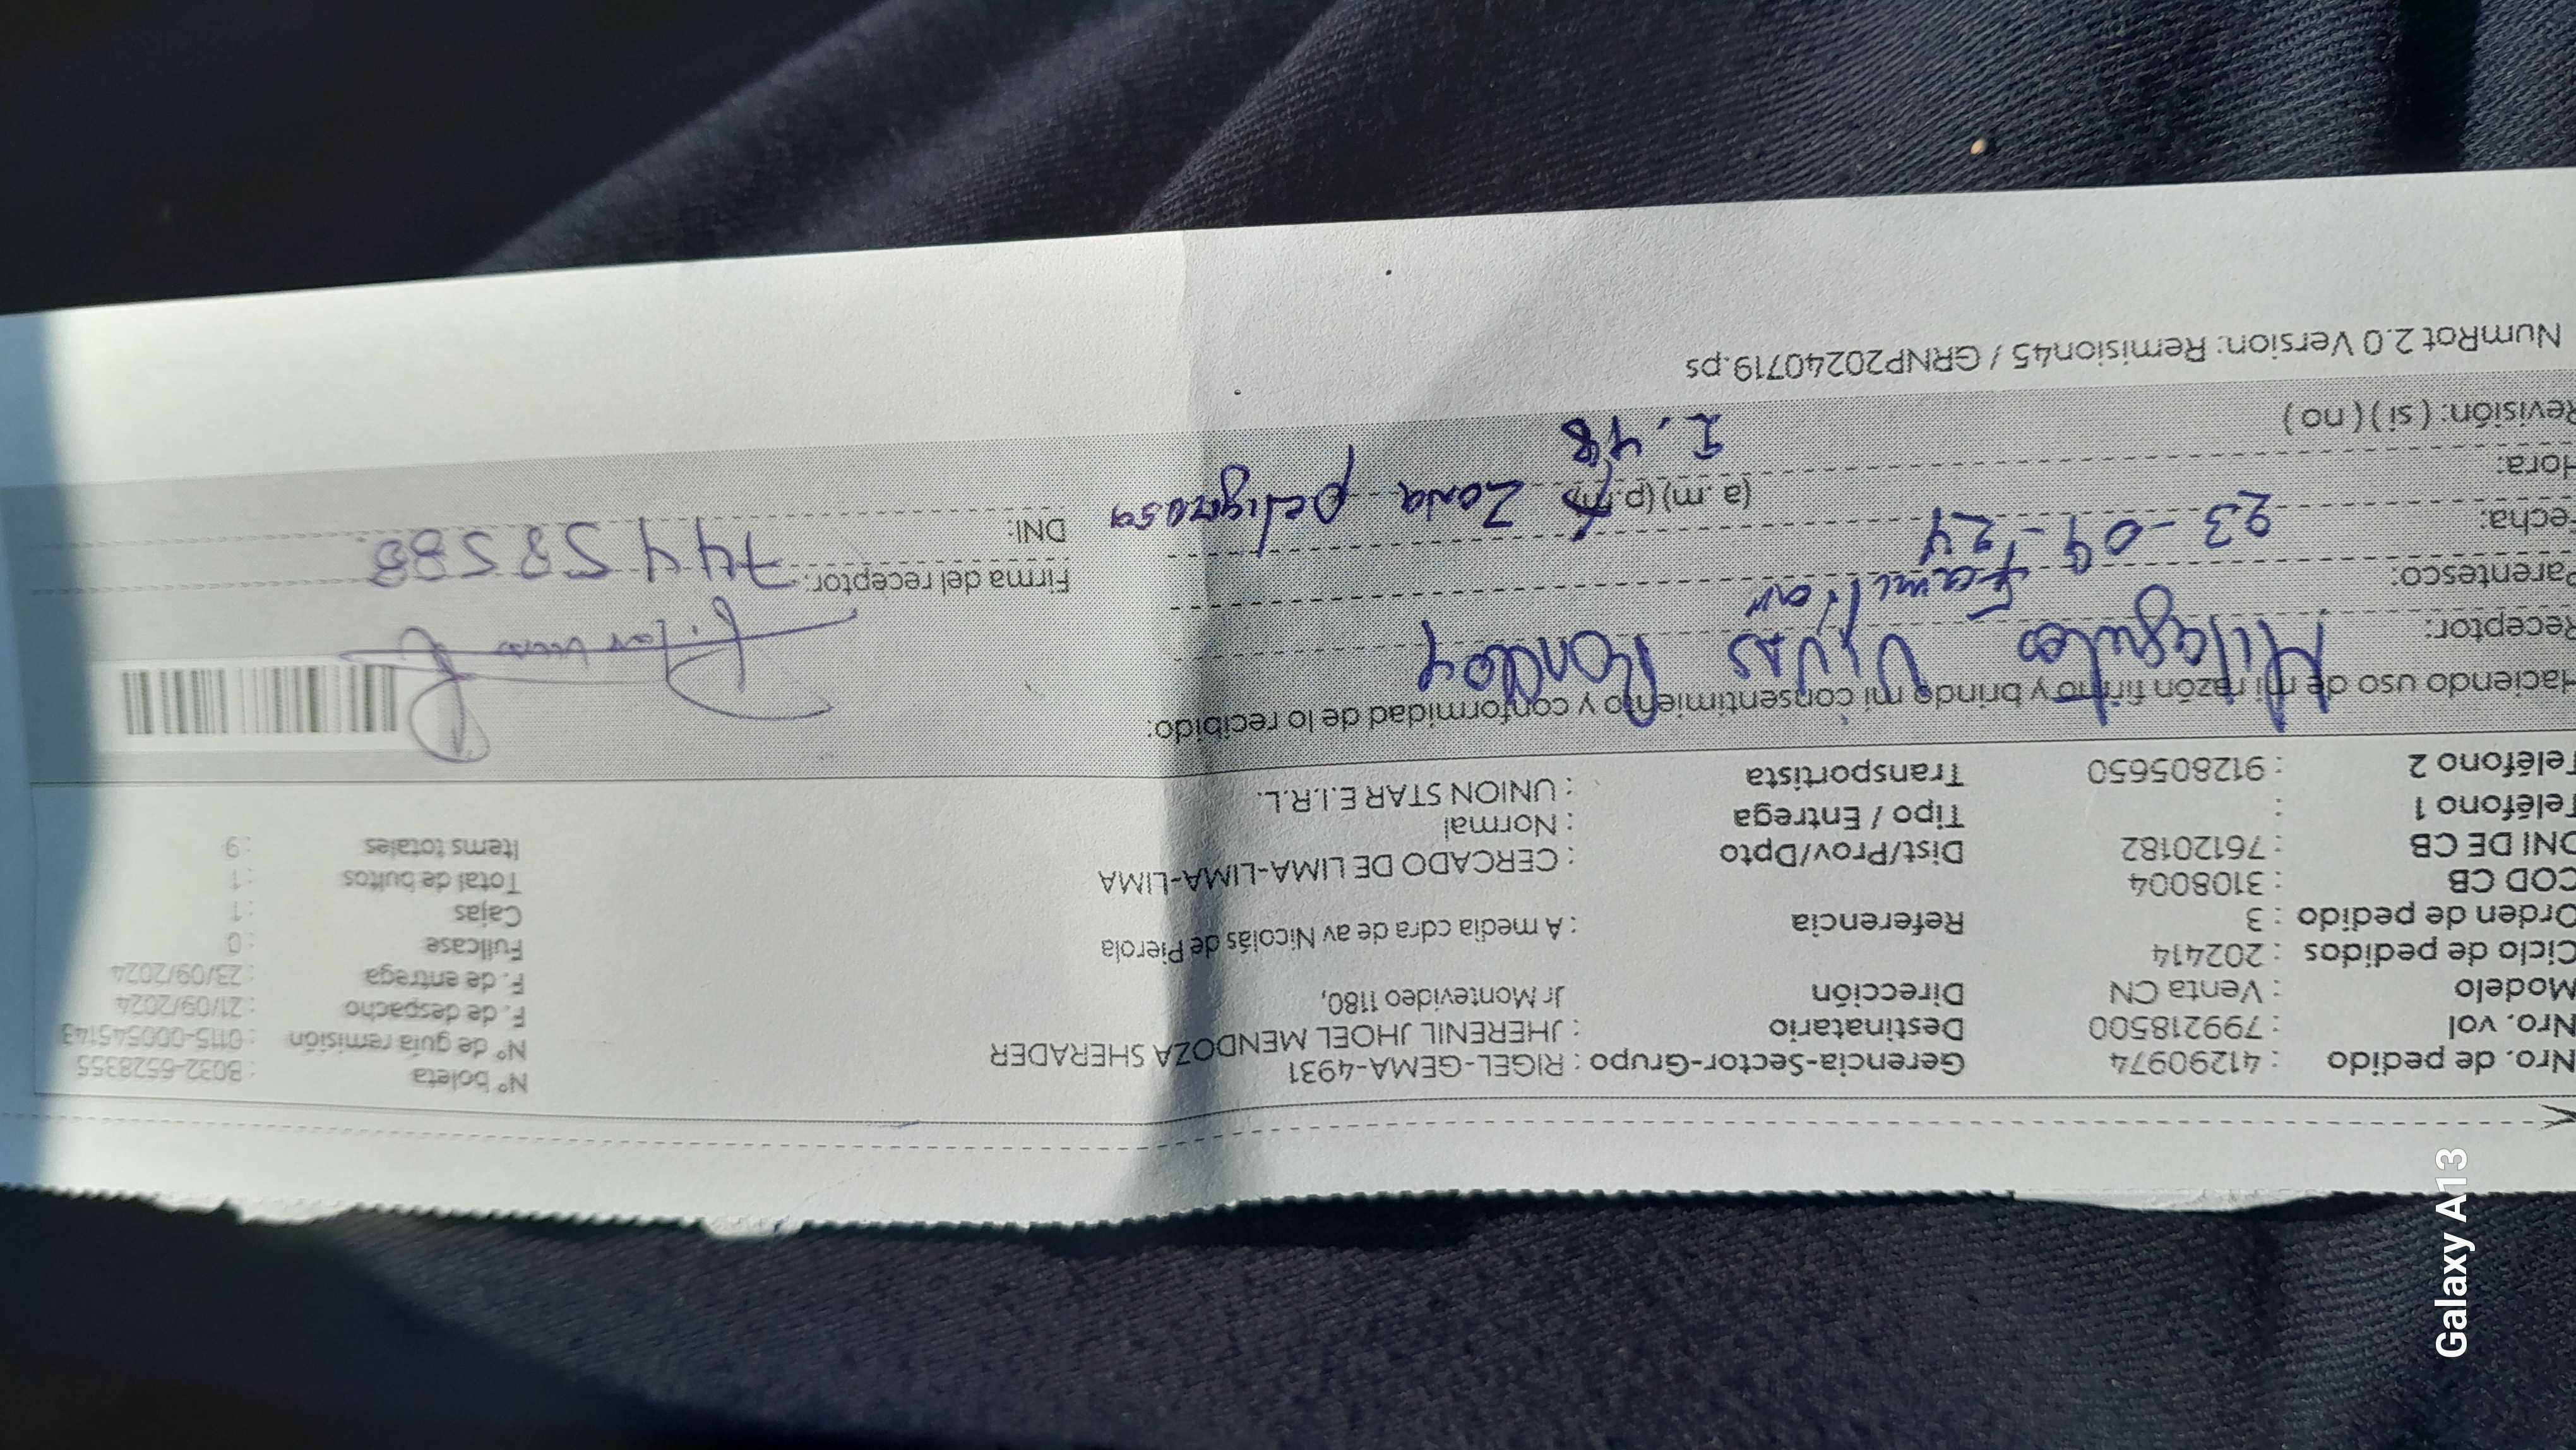 Nro. de pedido : 41290974 Gerencia-Sector-Grupo : RIGEL-GEMA-4931 N° boleta : B032-6528355
Nro. vol : 799218500 Destinatario : JHERENIL JHOEL MENDOZA SHERADER N° de guía remisión : 0115-000545143
Modelo : Venta CN Dirección Jr Montevideo 1180, F. de despacho : 21/09/2024
Ciclo de pedidos : 202414 F. de entrega : 23/09/2024
Orden de pedido : 3 Referencia : A media cdra de av Nicolás de Pierola Fullcase : 0
COD CB : 3108004 Cajas : 1
DNI DE CB : 76120182 Dist/Prov/Dpto : CERCADO DE LIMA-LIMA-LIMA Total de bultos : 1
Teléfono 1 : Tipo / Entrega : Normal Items totales : 9
Teléfono 2 : 912805650 Transportista : UNION STAR E.I.R.L.
Haciendo uso de mi razón firmo y brindo mi consentimiento y conformidad de lo recibido:
Receptor: Milagritos Vivas Rondoy
Parentesco: Familiar Firma del receptor:
Fecha: 23-09-24 DNI: 74458588
Hora: (a.m) (p.m) Zona peligrosa
Revisión: ( si ) ( no ) 2.48
NumRot 2.0 Version: Remision45 / GRNP20240719.ps
Galaxy A13